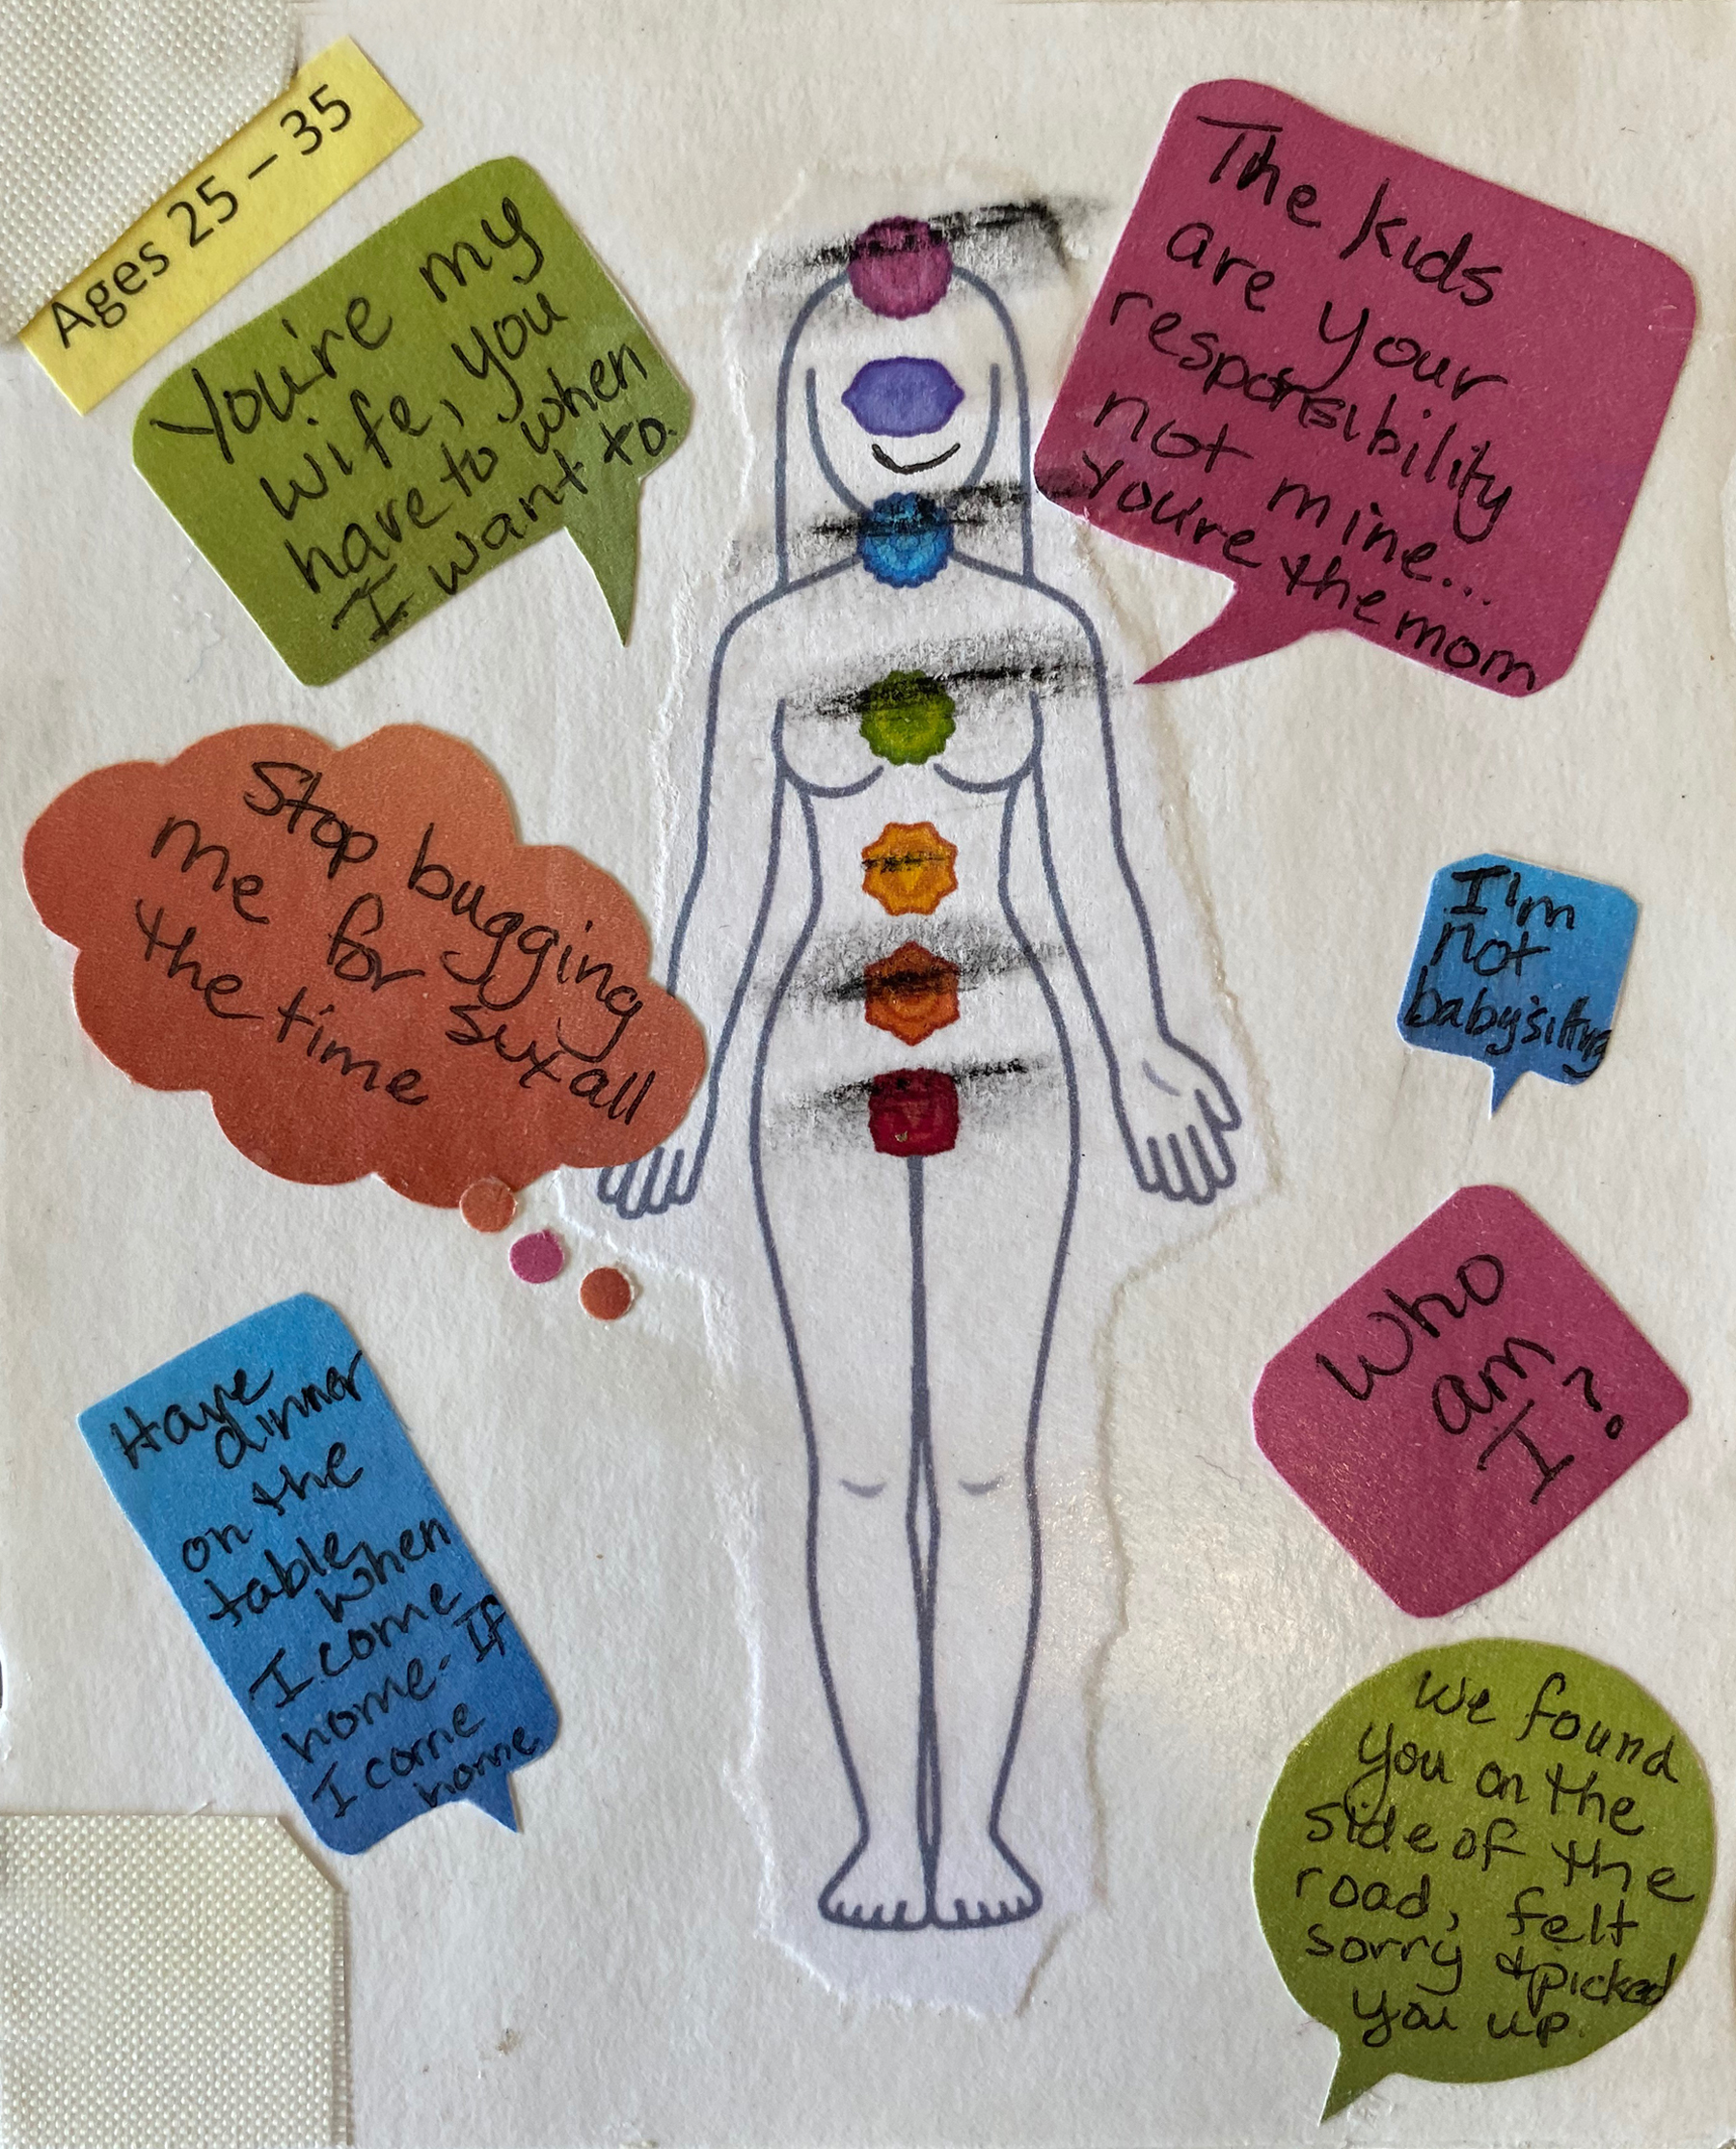 Ages 25 – 35
You're my
wife, you
have to when
I want to.
The kids
are your
responsibility
not mine...
you're the mom
Stop bugging
me for sux all
the time
I'm
not
babysitting
Have
dinner
on the
table
when
I come
home. If
I come
home.
Who
am
I?
We found
you on the
side of the
road, felt
sorry & picked
you up.